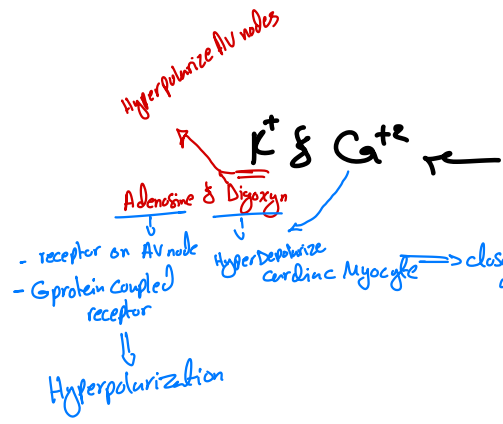 Hyperpolarize AV nodes
K+ & Ca+2
Adenosine & Digoxyn
- receptor on AV node
- G protein coupled
receptor
Hyperpolarization
HyperDepolarize
cardiac Myocyte
close